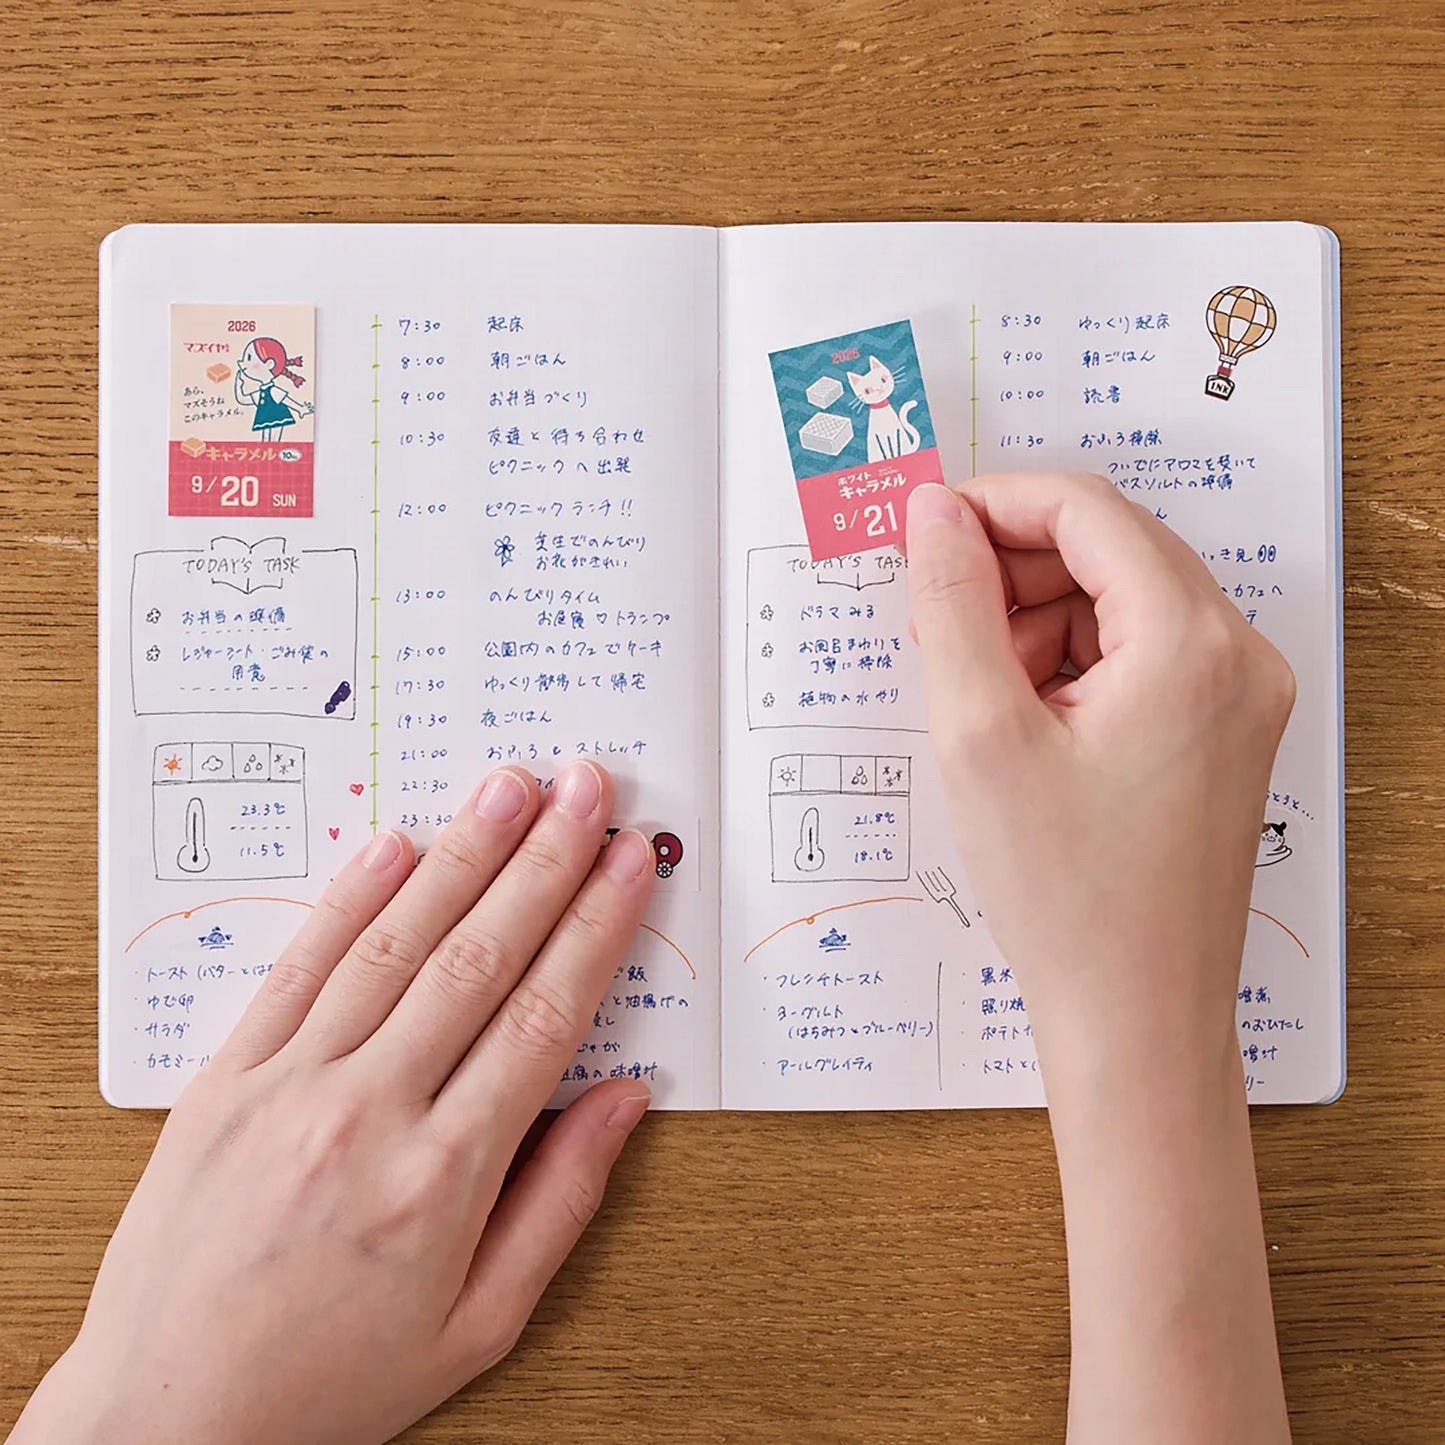 2026
マズイヤ
あら、
マズそうね
このキャラメル。
キャラメル 10
9/20 SUN
7:30 起床
8:00 朝ごはん
9:00 お弁当づくり
10:30 友達と待ち合わせ
ピクニックへ出発
12:00 ピクニックランチ!!
芝生でのんびり
お花がきれい
13:00 のんびりタイム
お昼寝♡トランプ
15:00 公園内のカフェでケーキ
17:30 ゆっくり散歩して帰宅
19:30 夜ごはん
21:00 おふろとストレッチ
22:30
23:30
TODAY'S TASK
お弁当の準備
レジャーシート・ごみ袋の
用意
23.3℃
11.5℃
トースト(バターとはち
ゆで卵
サラダ
カモミール
ご飯
と油揚げの
じゃが
豆腐の味噌汁
2026
ホワイト
キャラメル
9/21
8:30 ゆっくり起床
9:00 朝ごはん
10:00 読書
11:30 おふろ掃除
ついでにアロマを焚いて
バスソルトの準備
ん
っき見
のカフェへ
INK
TODAY'S TAS
ドラマみる
お風呂まわりを
丁寧に掃除
植物の水やり
21.8℃
18.1℃
うとうと...
フレンチトースト
ヨーグルト
(はちみつとブルーベリー)
アールグレイティ
黒米
照り焼
ポテトサ
トマトと
噌煮
のおひたし
噌汁
リー